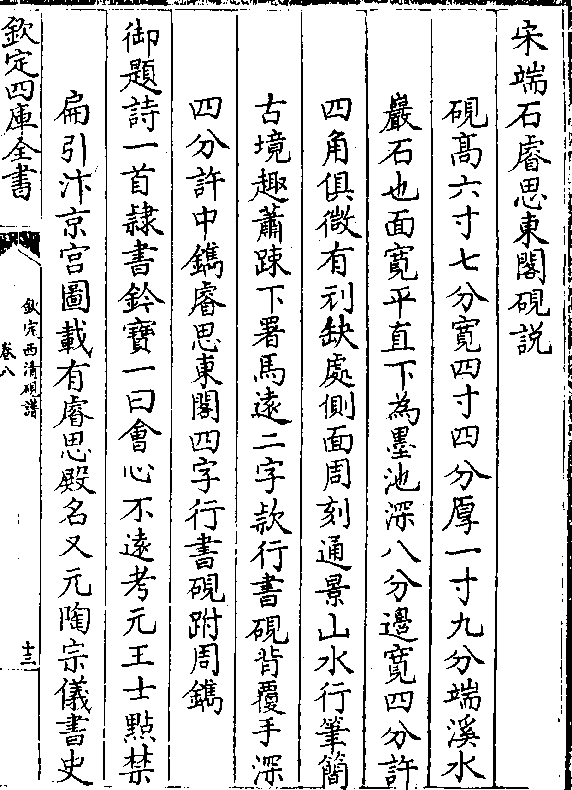 宋端石睿思東閣硯説
硯高六寸七分寬四寸四分厚一寸九分端溪水
巖石也面寬平直下為墨池深八分邊寬四分許
四角俱微有刓缺處側面周刻通景山水行筆簡
古境趣蕭踈下署馬遠二字款行書硯背覆手深
四分許中鐫睿思東閣四字行書硯跗周鐫
御題詩一首隸書鈐寶一曰會心不遠考元王士點禁
扁引汴京宫圖載有睿思殿名又元陶宗儀書史
欽定四庫全書
欽定西清硯譜
卷八
十三